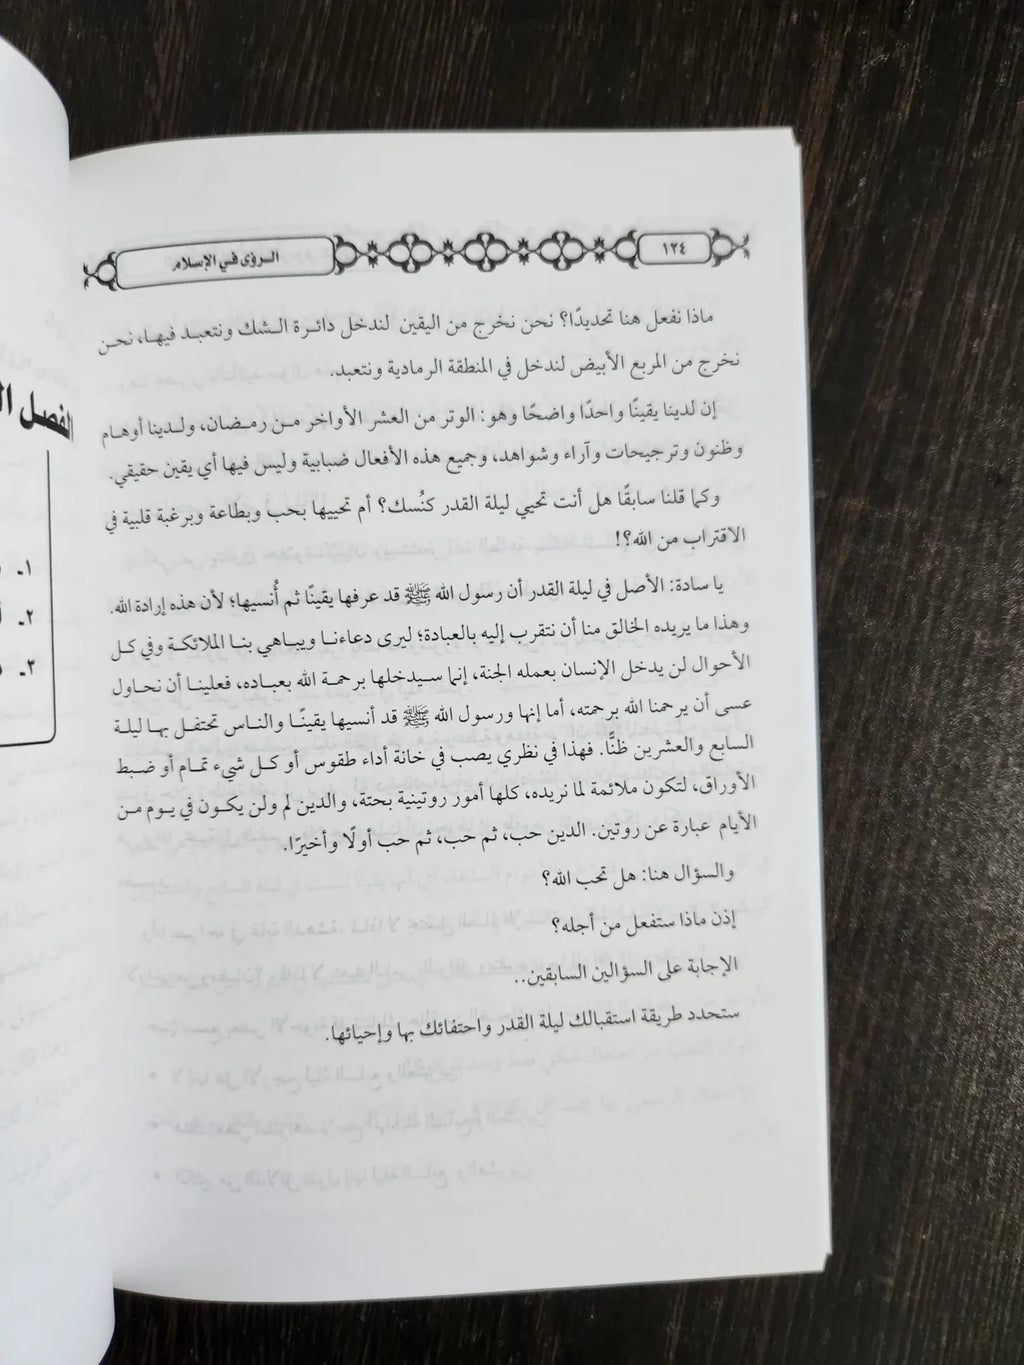 ١٢٤
الرؤى في الإسلام
ماذا نفعل هنا تحديدًا؟ نحن نخرج من اليقين لندخل دائرة الشك ونتعبد فيها، نحن
نخرج من المربع الأبيض لندخل في المنطقة الرمادية ونتعبد.
إن لدينا يقينًا واحدًا واضحًا وهو: الوتر من العشر الأواخر من رمضان، ولدينا أوهام
وظنون وترجيحات وآراء وشواهد، وجميع هذه الأفعال ضبابية وليس فيها أي يقين حقيقي.
وكما قلنا سابقًا هل أنت تحيي ليلة القدر كنُسك؟ أم تحييها بحب وبطاعة وبرغبة قلبية في
الاقتراب من الله؟!
يا سادة: الأصل في ليلة القدر أن رسول الله ﷺ قد عرفها يقينًا ثم أُنسيها؛ لأن هذه إرادة الله.
وهذا ما يريده الخالق منا أن نتقرب إليه بالعبادة؛ ليرى دعاءنا ويباهي بنا الملائكة وفي كل
الأحوال لن يدخل الإنسان بعمله الجنة، إنما سيدخلها برحمة الله بعباده، فعلينا أن نحاول
عسى أن يرحمنا الله برحمته، أما إنها ورسول الله ﷺ قد أنسيها يقينًا والناس تحتفل بها ليلة
السابع والعشرين ظنًّا. فهذا في نظري يصب في خانة أداء طقوس أو كل شيء تمام أو ضبط
الأوراق، لتكون ملائمة لما نريده، كلها أمور روتينية بحتة، والدين لم ولن يكون في يوم من
الأيام عبارة عن روتين. الدين حب، ثم حب، ثم حب أولًا وأخيرًا.
والسؤال هنا: هل تحب الله؟
إذن ماذا ستفعل من أجله؟
الإجابة على السؤالين السابقين..
ستحدد طريقة استقبالك ليلة القدر واحتفائك بها وإحيائها.
الفصل
١-
٢-
٣-